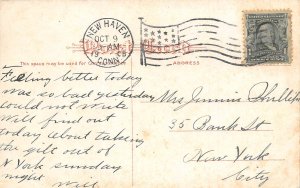 NEW HAVEN
OCT 9
CONN.
This space may be used for
ADDRESS
Feeling better today
was so bad yesterday
could not write
Will find out
today about taking
the gilt out of
N York sunday
night
Will
Mrs Jennie Phillips
35 Bank St
New York
City